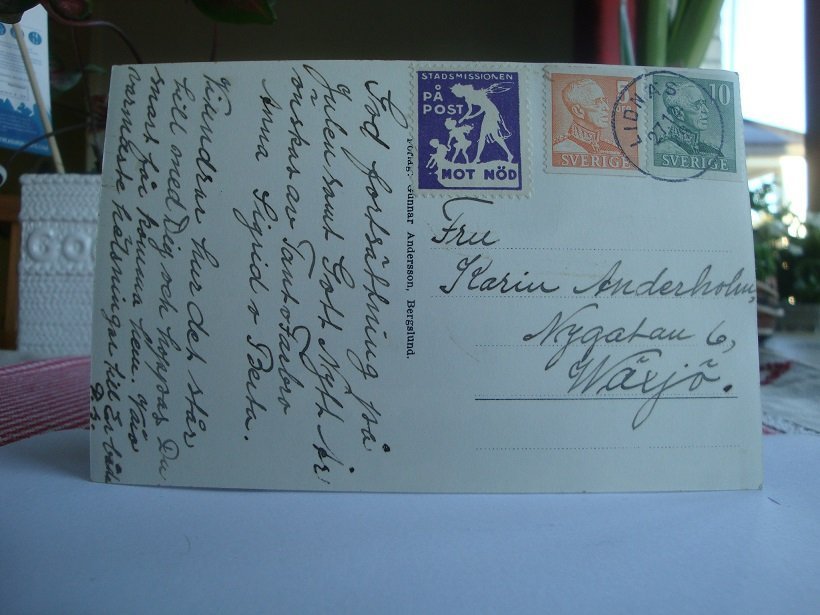 God fortsättning på
Julen samt Gott Nytt År!
önskas av Tant o Farbro
Anna Sigrid o Berta.
Vi undrar hur det står
till med Dig och hoppas Du
snart får komma hem. Våra
varmaste hälsningar till Er båda
D.S.
Förlag: Gunnar Andersson, Bergslund.
STADSMISSIONEN
PÅ
POST
MOT NÖD
5
SVERIGE
10
SVERIGE
LIDNÄS
Fru
Karin Anderholm,
Nygatan 6,
Wäxjö.
GO